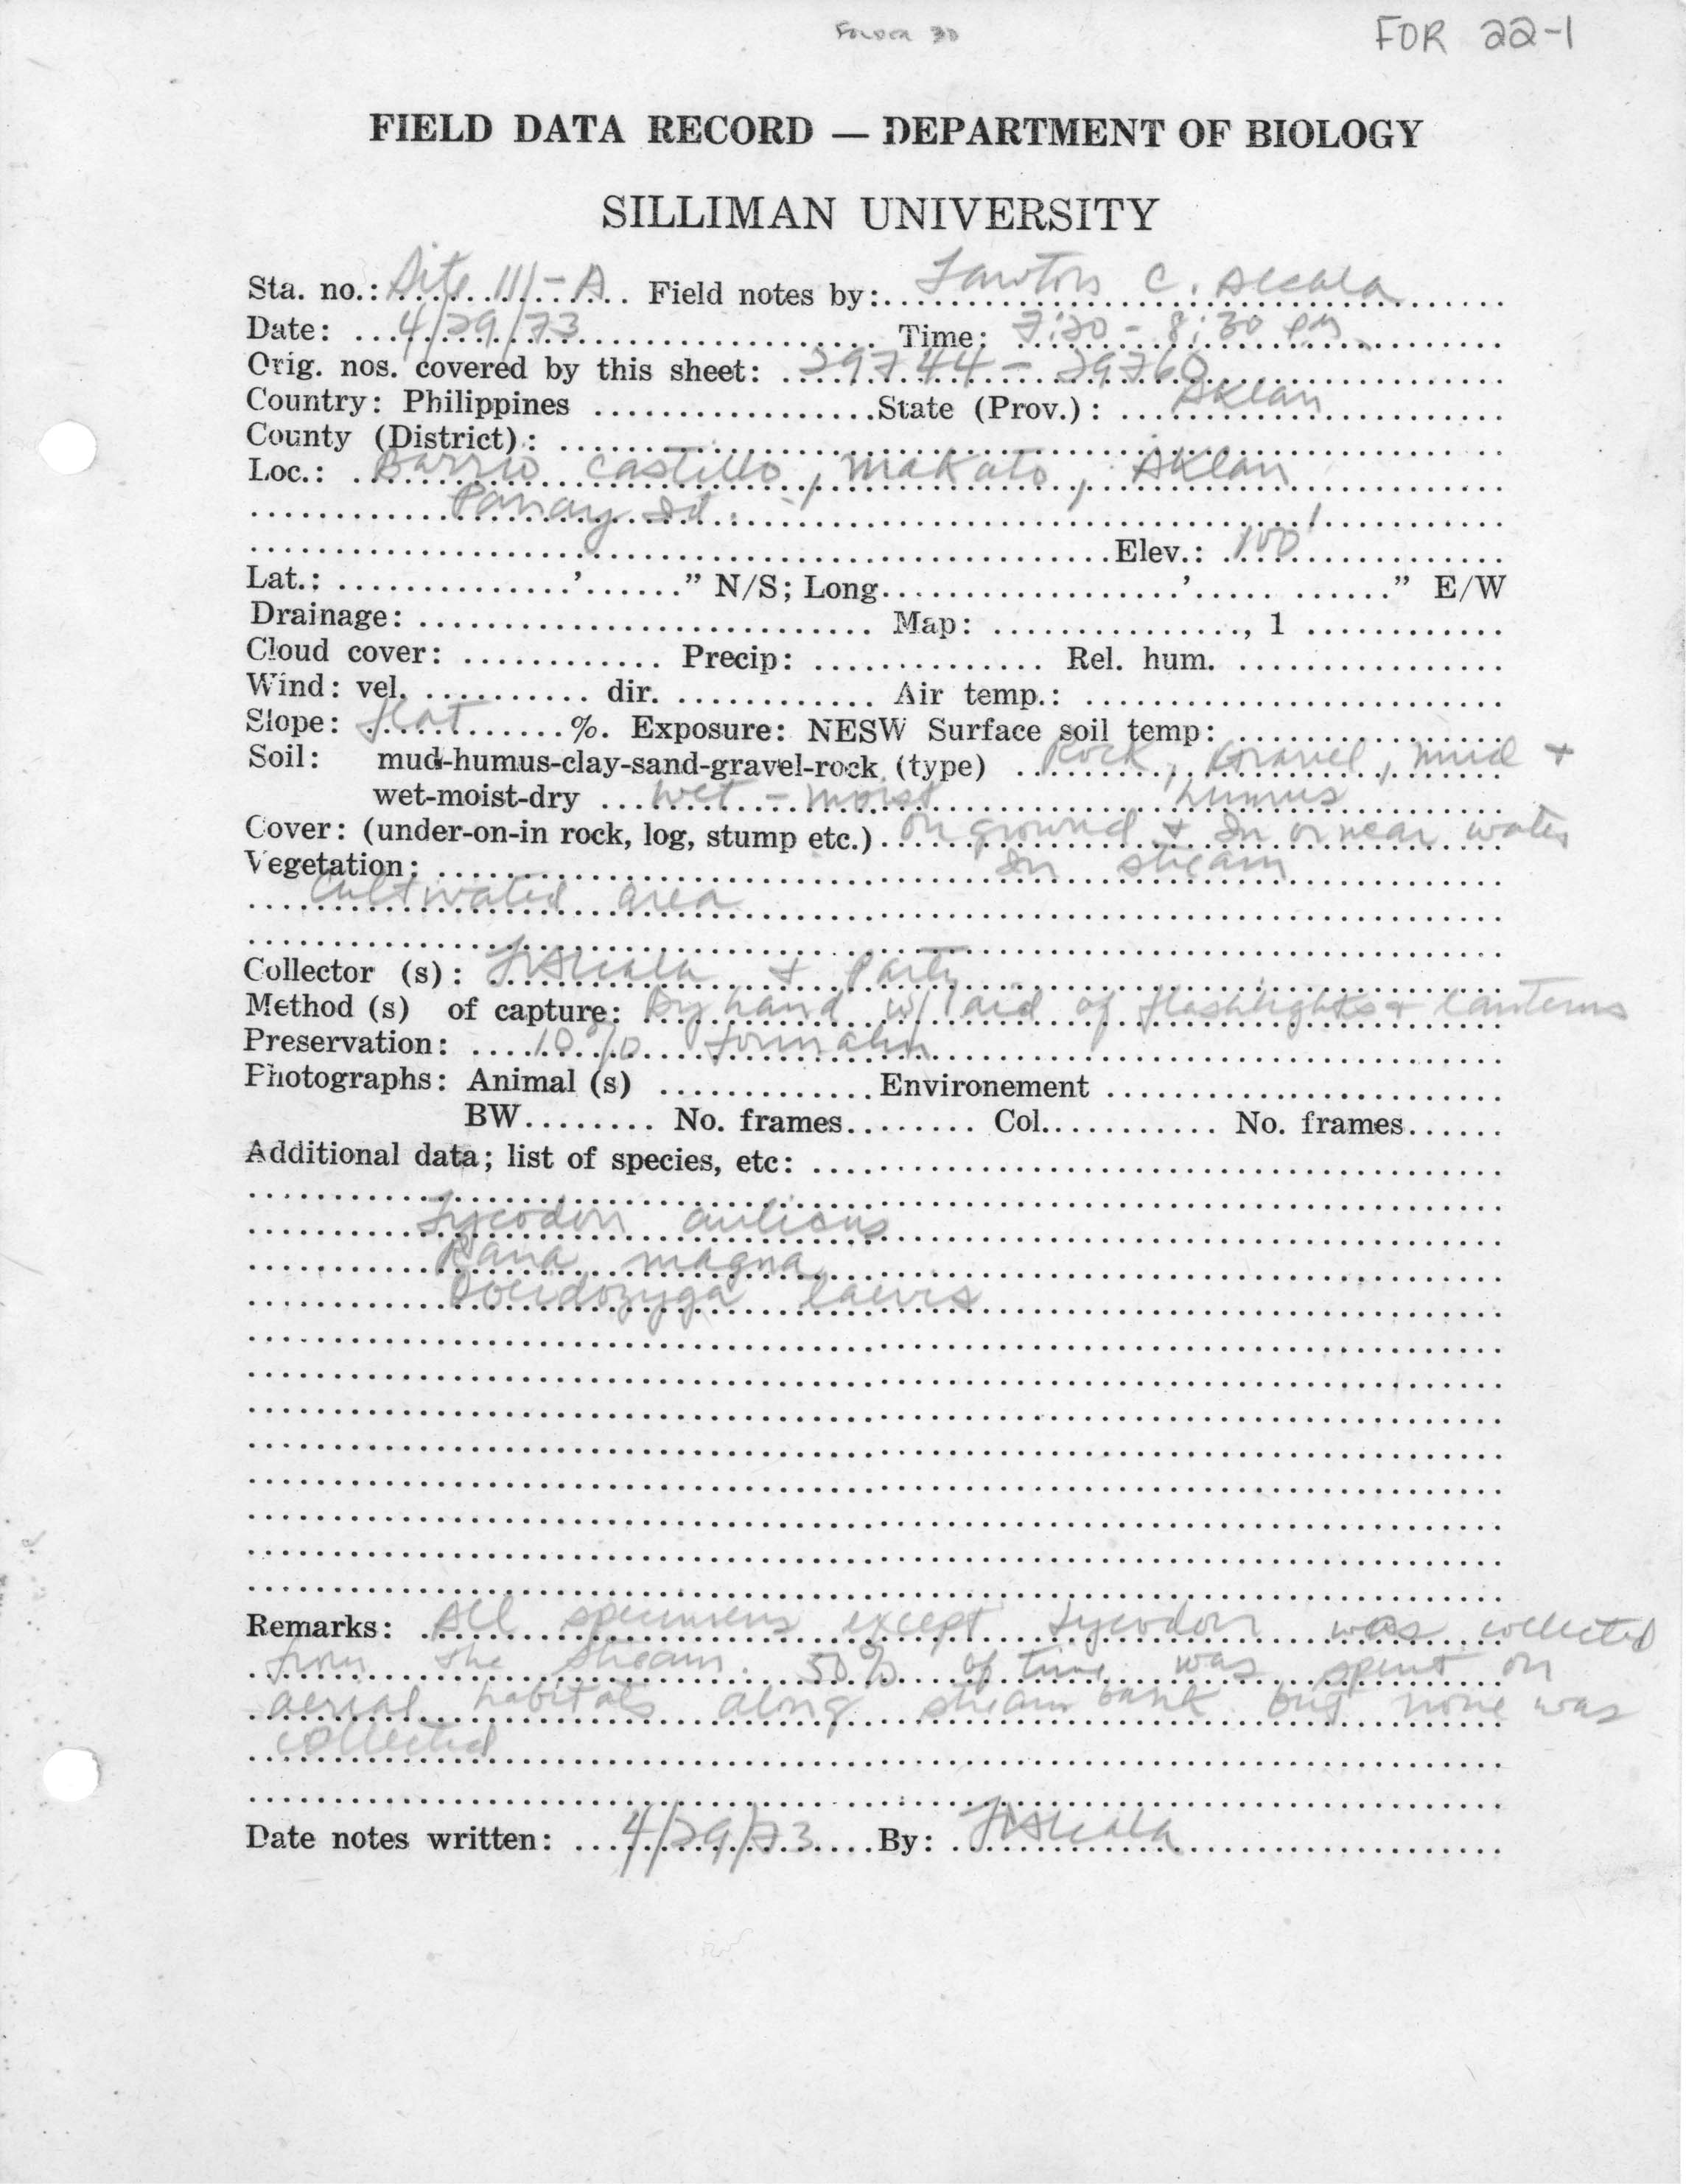 FOR 22-1
FIELD DATA RECORD — DEPARTMENT OF BIOLOGY
SILLIMAN UNIVERSITY
Sta. no.: Site III-A Field notes by: Lawton C. Alcala
Date: 4/29/73 Time: 7:30 - 8:30 pm
Orig. nos. covered by this sheet: 29744 - 29760
Country: Philippines State (Prov.): Aklan
County (District):
Loc.: Barrio Castillo, Makato, Aklan
Panay Isl.
Elev.: 100'
Lat.: ' " N/S; Long. ' " E/W
Drainage: Map: , 1
Cloud cover: Precip: Rel. hum.
Wind: vel. dir. Air temp.:
Slope: flat %. Exposure: NESW Surface soil temp:
Soil: mud-humus-clay-sand-gravel-rock (type) Rock, Gravel, mud +
wet-moist-dry wet - moist humus
Cover: (under-on-in rock, log, stump etc.) On ground + In or near water
Vegetation: In stream
Cultivated area
Collector (s): LAlcala + Party
Method (s) of capture: By hand w/ aid of flashlights + lanterns
Preservation: 10% formalin
Photographs: Animal (s) Environement
BW No. frames Col. No. frames
Additional data; list of species, etc:
Lycodon aulicus
Rana magna
Ooeidozyga laevis
Remarks: All specimens except Lycodon was collected
from the stream. 50% of time was spent on
aerial habitats along stream bank but none was
collected
Date notes written: 4/29/73 By: LAlcala